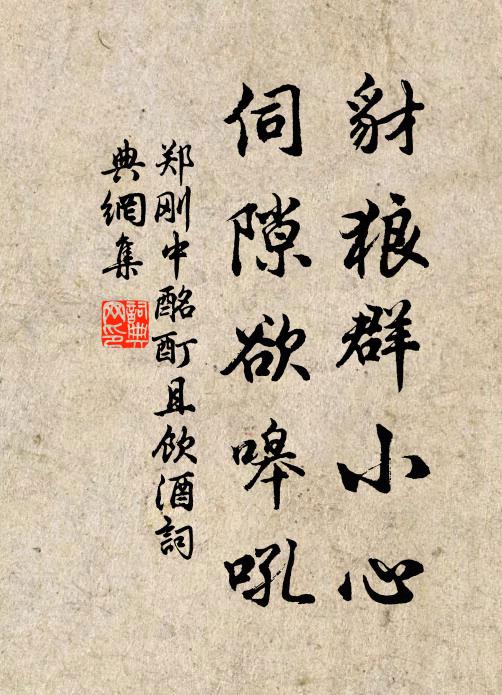 豺狼群小心
伺隙欲嗥吼
郑刚中酩酊且饮酒詞
典網集
詞典
网印